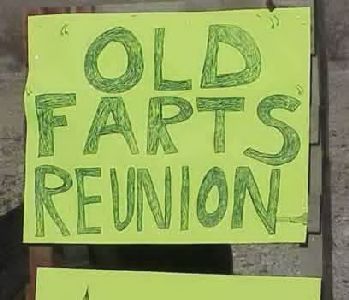 OLD
FARTS
REUNION